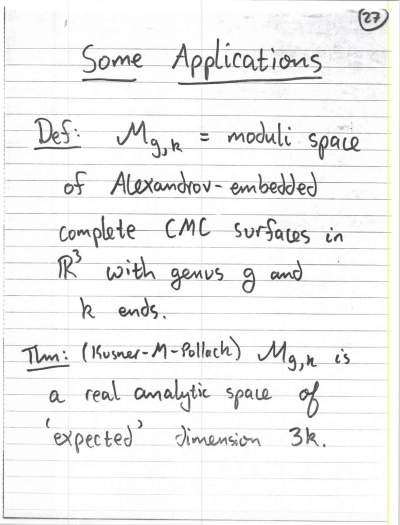 27
Some Applications
Def: M_{g,k} = moduli space
of Alexandrov-embedded
complete CMC surfaces in
ℝ³ with genus g and
k ends.
Thm: (Kusner-M-Pollack) M_{g,k} is
a real analytic space of
'expected' dimension 3k.